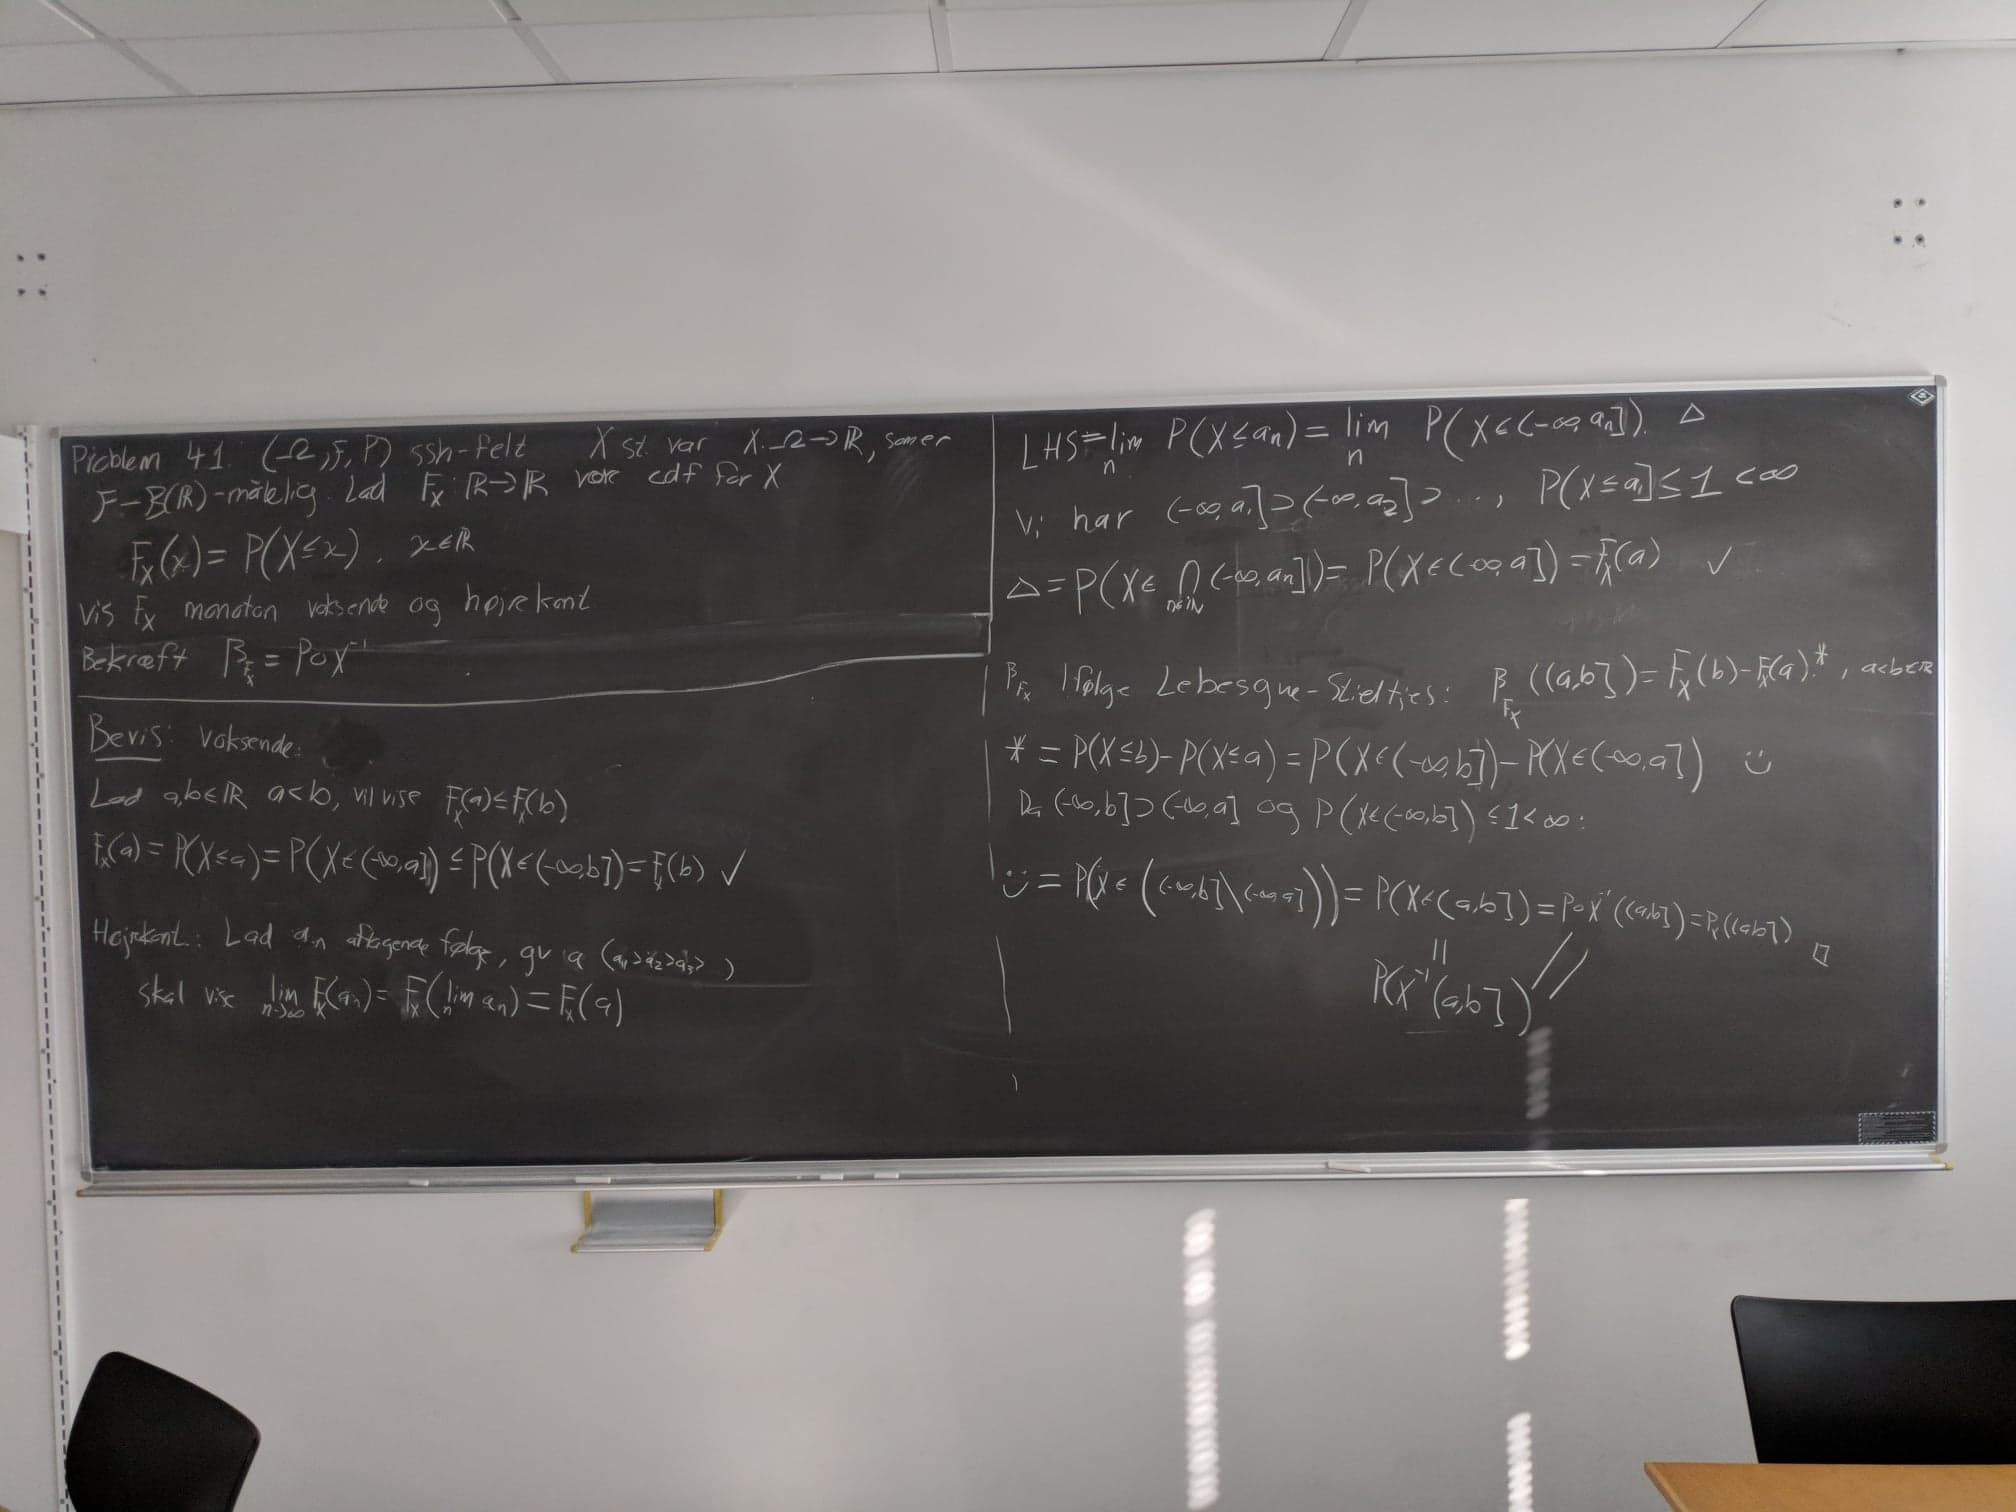 Problem 41. (Ω, F, P) ssh-felt X st. var X: Ω→ℝ, som er
F-B(ℝ)-målelig. Lad F_X: ℝ→ℝ være cdf for X
F_X(x) = P(X≤x), x∈ℝ
Vis F_X monoton voksende og højrekont
Bekræft β_{F_X} = P∘X⁻¹
Bevis: Voksende:
Lad a,b∈ℝ a<b, vil vise F_X(a)≤F_X(b)
F_X(a) = P(X≤a) = P(X∈(-∞,a]) ≤ P(X∈(-∞,b]) = F_X(b) ✓
Højrekont.: Lad aftagende følge, (a₁>a₂>a₃> )
skal vise lim_{n→∞} F_X(a_n) = F_X(lim_n a_n) = F_X(a)
LHS = lim_n P(X≤a_n) = lim_n P(X∈(-∞,a_n]). △
Vi har (-∞,a₁]⊃(-∞,a₂]⊃..., P(X≤a₁]≤1<∞
△ = P(X∈ ⋂_{n∈ℕ} (-∞,a_n]) = P(X∈(-∞,a]) = F_X(a) ✓
β_{F_X} Ifølge Lebesgue-Stieltjes: β_{F_X}((a,b]) = F_X(b)-F_X(a).*, a<b∈ℝ
* = P(X≤b)-P(X≤a) = P(X∈(-∞,b])-P(X∈(-∞,a]) ::)
Da (-∞,b]⊃(-∞,a] og P(X∈(-∞,b]) ≤1<∞:
::) = P(X∈((-∞,b]\(-∞,a])) = P(X∈(a,b]) = P∘X⁻¹((a,b]) = P_X((a,b]) □
||
P(X⁻¹(a,b]) //